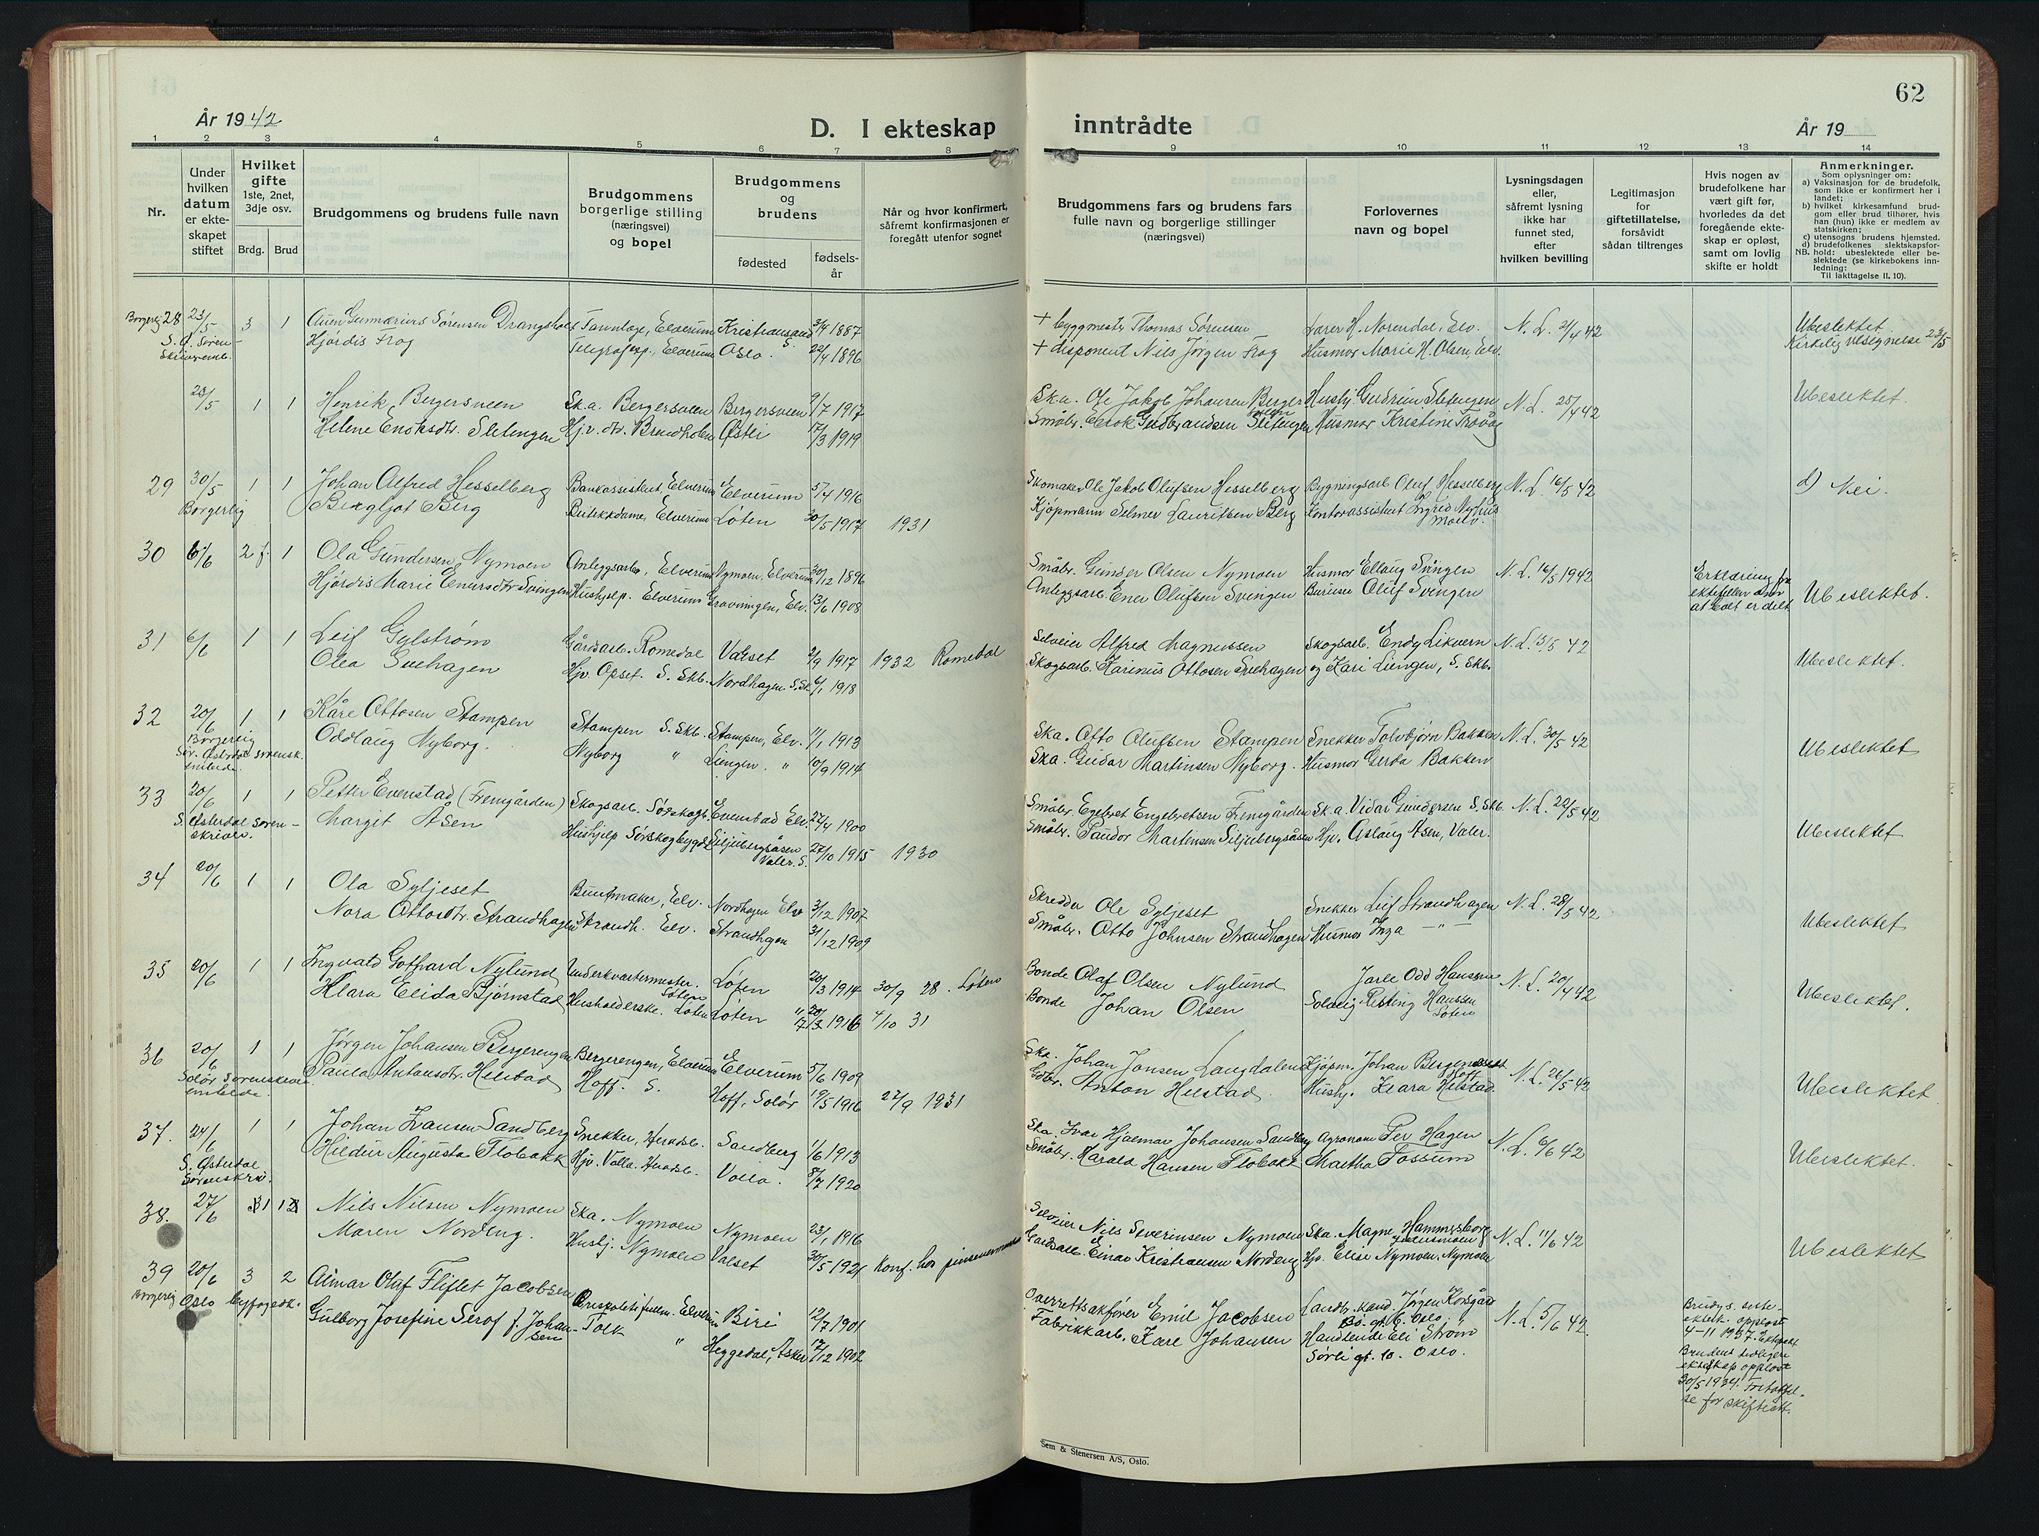 61
År 1942
D. I ekteskap
1 2 3 4 5 6 7 8
Nr.
Under hvilken datum er ekteskapet stiftet
Hvilket gifte 1ste, 2net, 3dje osv.
Brdg. Brud
Brudgommens og brudens fulle navn
Brudgommens borgerlige stilling (næringsvei) og bopel
Brudgommens og brudens
fødested
fødselsår
Når og hvor konfirmert, såfremt konfirmasjonen er foregått utenfor sognet
Borgerlig 28 23/5 3 1 Sørensen Drangsholt Tannlæge, Elverum Kristiansand S. 3/4 1887
Hjørdis Frog Telegrafexp., Elverum Oslo. 22/4 1896
23/5 1 1 Henrik Bergersveen Ska. Bergersveen Bergersveen 9/7 1917
Helene Enoksdtr. Sletengen Hjv. dtr. Brandholen Østli 17/3 1919
29 30/5 1 1 Johan Alfred Hesselberg Bankassistent Elverum Elverum 5/4 1916
Borgerlig Bergljot Berg Butikkdame, Elverum Løten 30/5 1917 1931
30 6/6 2 f. 1 Ola Gundersen Nymoen Anleggsarb. Elverum Nymoen, Elverum 30/12 1896
Hjørdis Marie Enersdtr Svingen Hushjelp. Elverum Gravningen, Elv. 13/6 1908
31 6/6 1 1 Leif Gylstrøm Gårdsarb. Romedal Valset 2/9 1917 1932 Romedal
Olea Snehagen Hjv. Opset S. Skb. Nordhagen S. Sk. 6/1 1918
32 20/6 1 1 Kåre Ottosen Stampen Stampen S. Skb. Stampen, Elv. 11/1 1913
Borgerlig Oddlaug Nyborg. Nyborg " Liengen. " 10/9 1914
33 20/6 1 1 Petter Evenstad (Fremgården) Skogsarb. Sørskogb. Evenstad Elv. 22/4 1900
S. Østerdal sorenskriver. Marget Åsen Hushjelp Sørskogbygda Siljubergsåsen Våler. S. 27/10 1915 1930
34 20/6 1 1 Ola Syljeset Buntmaker, Elv. Nordhagen Elv 3/12 1907
Nora Ottosdtr. Strandhagen Strandh. Elv. Strandhagen 31/12 1909
35 20/6 1 1 Ingvald Gothard Nylund Underkvartermester. Løten Løten 20/3 1914 30/9 28. Løten
Klara Elida Bjørnstad Husholderske. Løten Løten 1916 4/10 31
36 20/6 1 1 Jørgen Johansen Bergerengen Bergerengen, Elverum Elverum 5/6 1909
Paula Antonsdtr. Helstad Hoff. S. Hoff, Solør 19/5 1916 27/9 1931
37. 24/6 1 1 Johan Ivarsen Sandberg Snekker, Hernesb. Sandberg 1/6 1913
S. Østerdal Sorenskr. Hildur Augusta Flobakk Hjv. Volla. Hernesb. Volla. 8/7 1920
38. 27/6 1 1 Nils Nilsen Nymoen Ska. Nymoen Nymoen 23/1 1916
Maren Nordeng. Hushj. Nymoen Valset 30/5 1921 Konf. hos pinsevennene
39 20/6 3 2 Almar Olaf Fliflet Jacobsen Elverum Biri 12/7 1901
Borgerlig Oslo byfogedk. Gulborg Josefine Serof f. Johansen Tolk " Heggedal, Asker 17/12 1902
62
inntrådte
År 19
9 10 11 12 13 14
Brudgommens fars og brudens fars fulle navn og borgerlige stillinger (næringsvei)
Forlovernes navn og bopel
Lysningsdagen eller, såfremt lysning ikke har funnet sted, efter hvilken bevilling
Legitimasjon for giftetillatelse, forsåvidt sådan tiltrenges
Hvis nogen av brudefolkene har vært gift før, hvorledes da det foregående ekteskap er opløst, samt om lovlig skifte er holdt
Anmerkninger.
Som oplysninger om:
a) Vaksinasjon for de brudefolk, som ikke er konfirmert her i landet;
b) hvilket kirkesamfund brudgom eller brud tilhører, hvis han (hun) ikke er medlem av statskirken;
c) utensogns brudens hjemsted.
d) brudefolkenes slektskapsforhold: ubeslektede eller beslektede (se kirkebokens innledning:
NB.
Til Iakttagelse II. 10).
+ byggmester Thomas Sørensen Lærer H. Norendal, Elv. N. L. 2/4 42 Ubeslektet.
+ disponent Nils Jørgen Frog Husmor Marie H. Olsen, Elv. Kirkelig velsignelse 23/5
Ska. Ole Jakob Johansen Bergersveen Hushj. Gudrun Sletengen N. L. 25/4 42 Ubeslektet.
Småbr. Enok Gudbrandsen Sletengen Husmor Kristine
Skomaker Ole Jakob Olufsen Hesselberg Bygningsarb Oluf Hesselberg N. L. 16/5 42 d) Nei.
Kjøpmann Selmer Lauritsen Berg Kontorassistent Ingrid Nyhus Moelv.
Småbr. Gunder Olsen Nymoen Husmor Ellaug Svingen N. L. 16/5 1942 Erklæring fra ektefellen om at boet er delt Ubeslektet.
Anleggsarb. Ener Olufsen Svingen Bureiser Oluf Svingen
Selveier Alfred Magnussen Skogsarb. Endy Likvern N. L. 13/5 42 Ubeslektet.
Skogsarb. Karinus Ottosen Snehagen og Kari Liengen, S. Skb.
Ska. Otto Olufsen Stampen Snekker Torbjørn Bakken N. L. 30/5 42 Ubeslektet
Ska. Gudar Martinsen Nyborg. Husmor Gerda Bakken
Småbr. Egebret Engebretsen Fremgården Ska. Vidar Gundersen S. Skb N. L. 22/5 42 Ubeslektet
Småbr. Martinsen Siljubergsåsen Hjv. Aslaug Åsen, Våler.
Skredder Ole Syljeset Snekker Leif Strandhagen N. L. 28/5 42 Ubeslektet
Småbr. Otto Johnsen Strandhagen Husmor Inga -"-
Bonde Olaf Olsen Nylund Jarle Odd Hansen N. L. 20/4 42 Ubeslektet.
Bonde Johan Olsen Solveig Hansen Løten
Ska. Johan Jonsen Langdalen Kjøpm. Johan Hoff N. L. 26/5 42 Ubeslektet.
Gdbr. Anton Helstad. Hushj. Klara Helstad
Ska. Ivar Hjalmar Johansen Sandberg Agronom Per Hagen N. L. 6/6 42 Ubeslektet.
Småbr. Harald Hansen Flobakk Martha Fossum
Selveier Nils Severinsen Nymoen Ska. Magne Hammersborg N. L. 11/6 42 Ubeslektet
Gardsarb. Einar Kristiansen Nordeng Hjv. Elise Nymoen. Nymoen
Overrettsakfører Emil Jacobsen Landb. kand. Jørgen Korsgård Oslo N. L. 5/6 42.
Fabrikkarb. Kare Johansen Handlende Eli Strøm Sørli gt. 10. Oslo.
Brudg. siste ektesk. oppløst 4-11 1937.
Brudens tidligere ekteskap oppløst 30/5 1934. Fritakelse for skifteatt.
Sem & Stenersen A/S, Oslo.